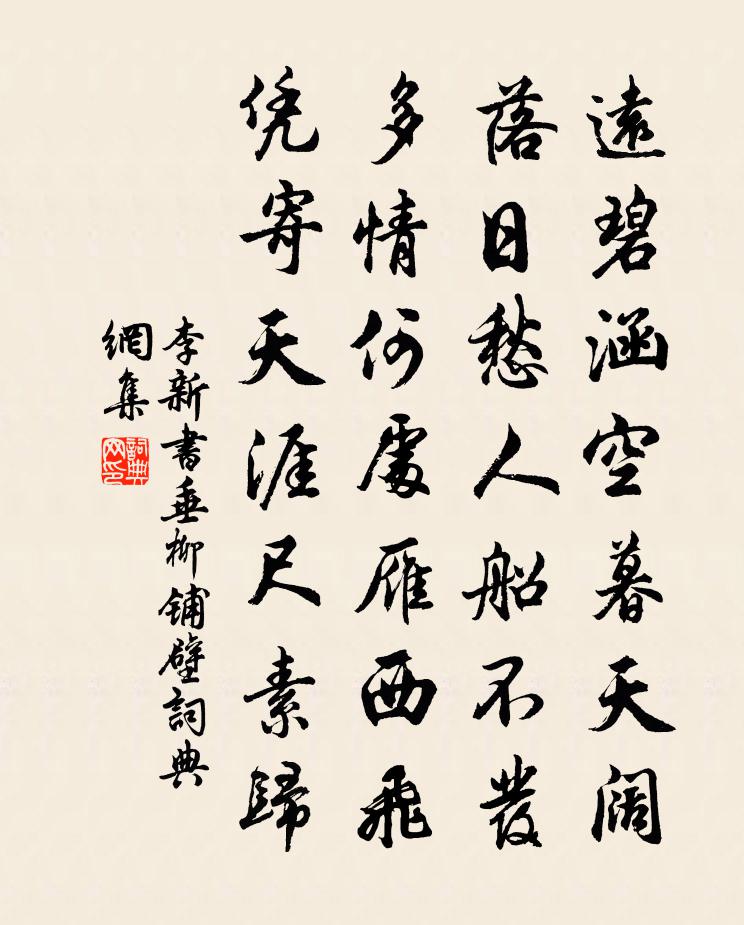 遠碧涵空暮天闊
落日愁人船不發
多情何處雁西飛
凭寄天涯尺素歸
李新書垂柳鋪壁詞典
網集
詞典
网印